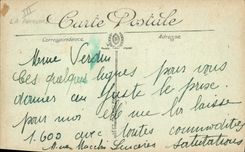 III
Carte Postale
Correspondance
Adresse
Meme Verdun
Ces quelques lignes pour vous
donner au juste le prix.
pour moi elle me la laisse
1.600 avec toutes commodités
Salutations